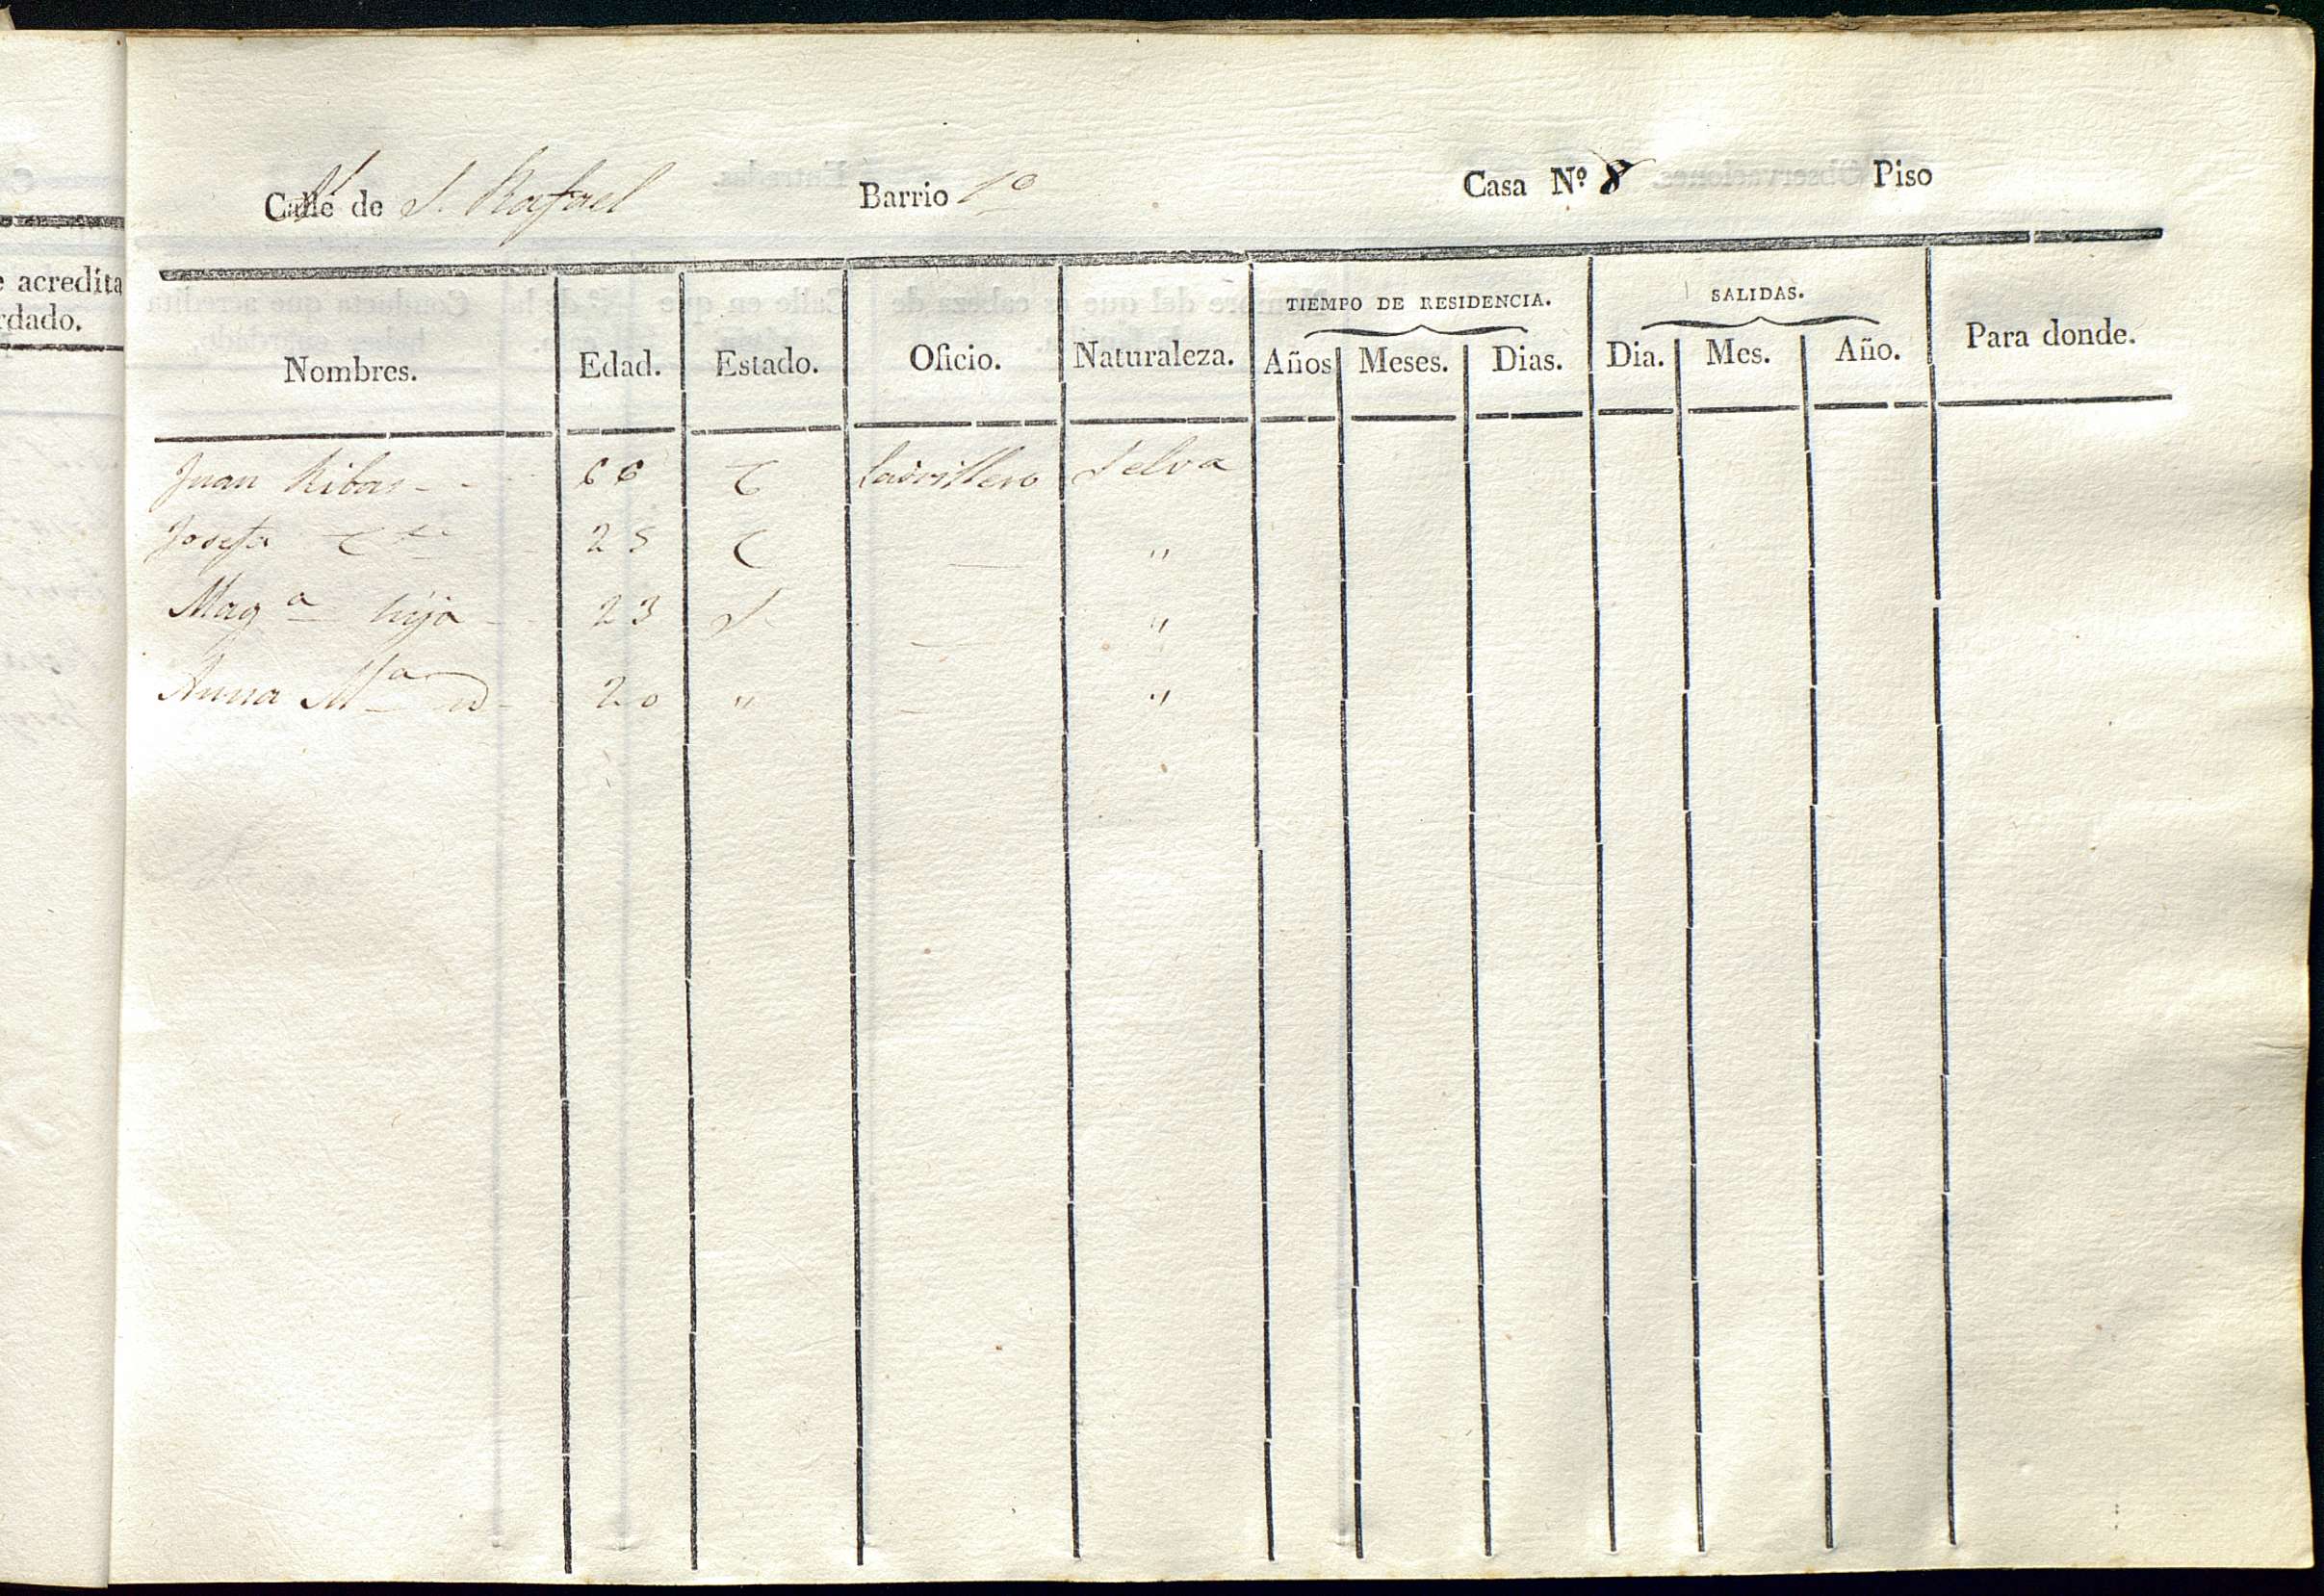 Calle de S. Rafael Barrio 1º Casa Nº 8 Piso
e acredita
rdado.
Nombres. Edad. Estado. Oficio. Naturaleza. TIEMPO DE RESIDENCIA. Años Meses. Dias. SALIDAS. Dia. Mes. Año. Para donde.
Juan Ribas 66 C ladrillero Selva
Josefa 25 C — "
Magª hija 23 S — "
Anna Mª id 20 " — "